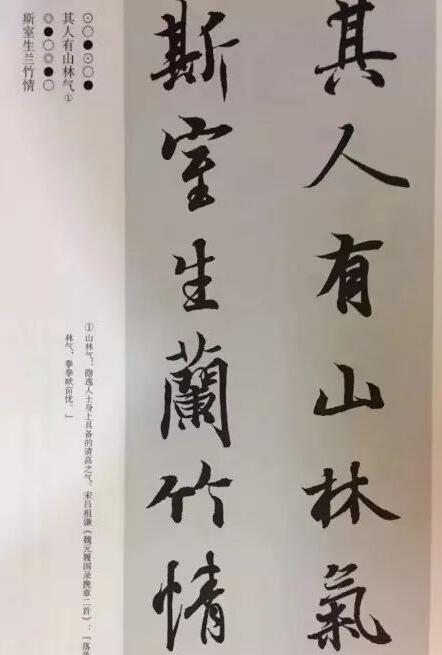 其人有山林氣
斯室生蘭竹情
⊙○●⊙○●
其人有山林气①
◎●○◎●○
斯室生兰竹情
①山林气：隐逸人士身上具备的清高之气。宋吕祖谦《魏元履国录挽章二首》：『落落
林气，拳拳畎亩忧。』